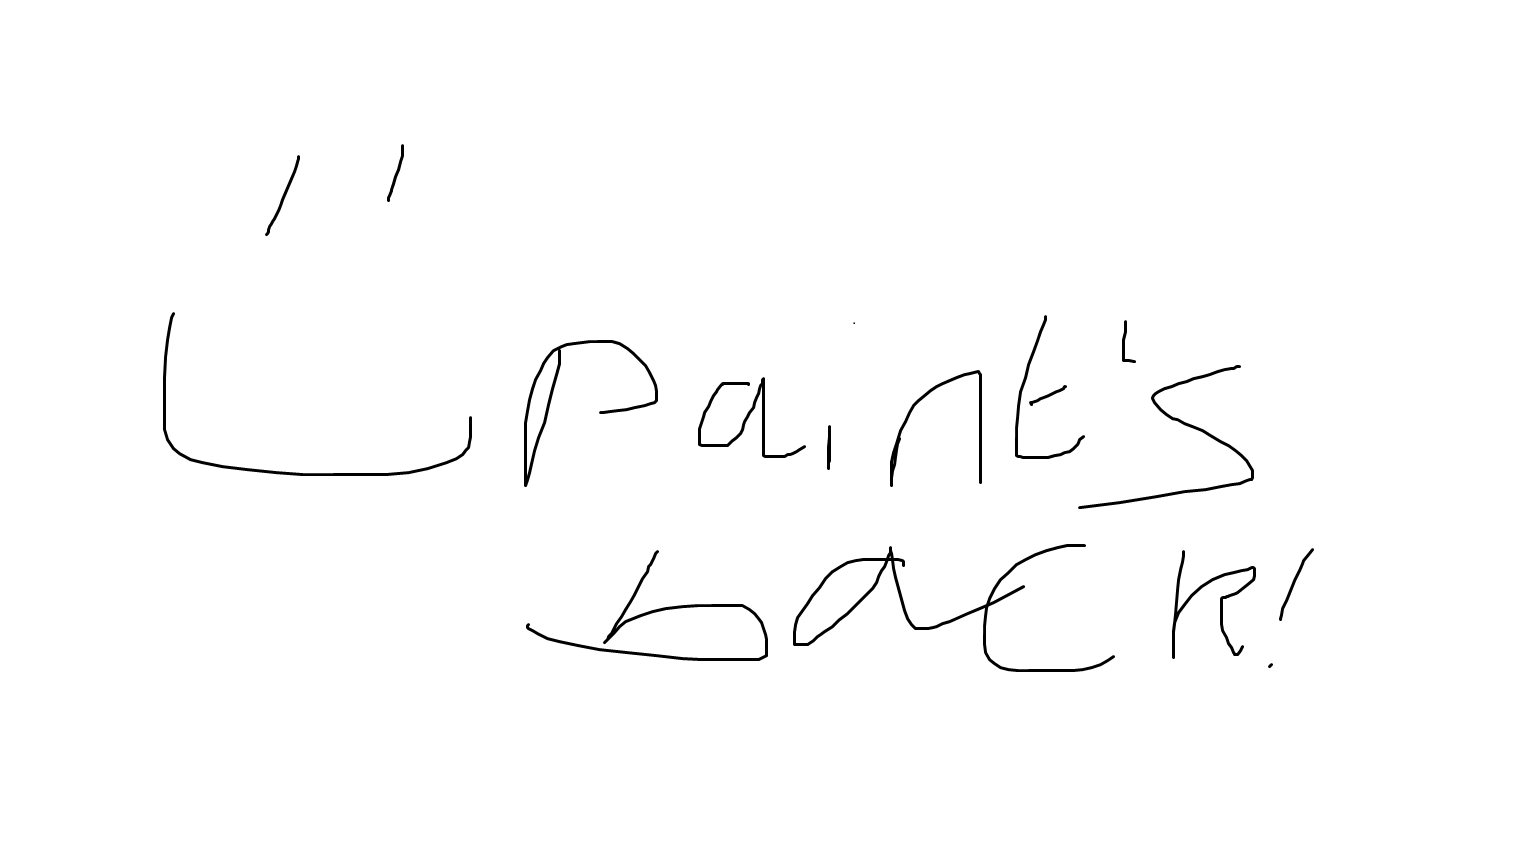 paint's
back!